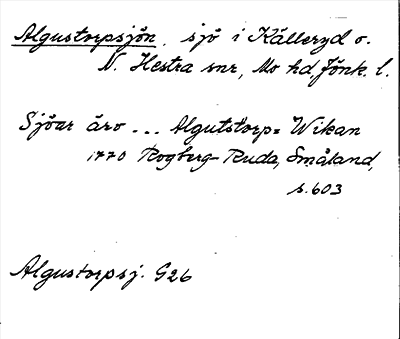 Algustorpsjön, sjö i Källeryd o.
N. Hestra snr, Mo hd, Jönk. l.
Sjöar äro ... Algutstorp= Wikan
1770 Rogberg-Ruda, Småland,
s. 603
Algustorpsj. G26